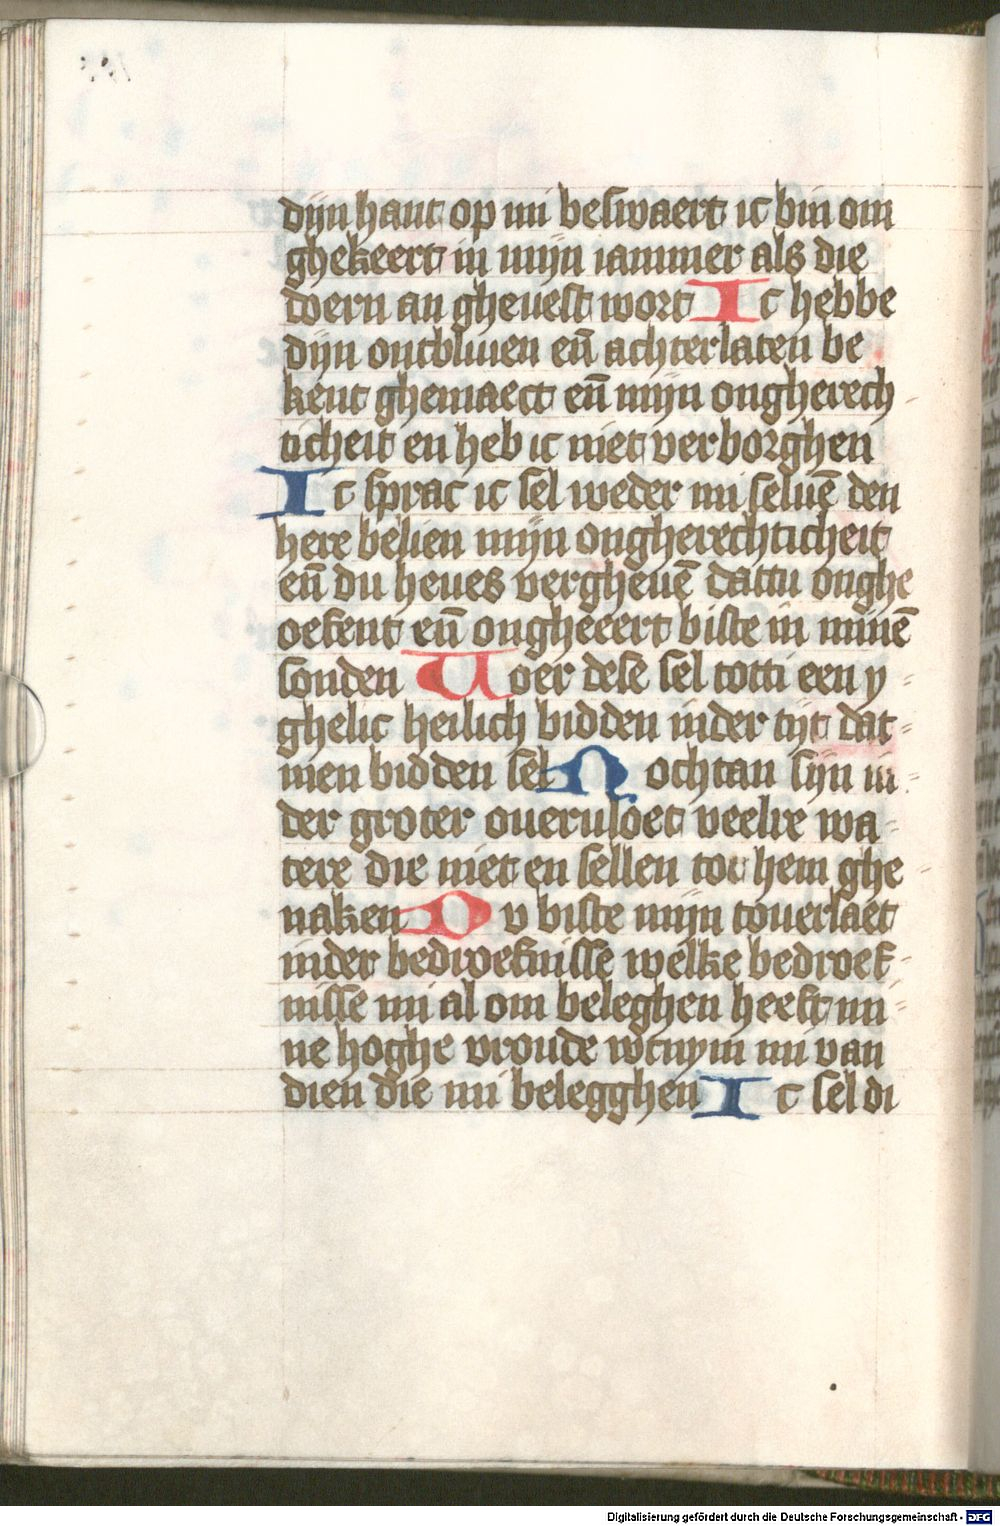 dijn hant op mi beswaert ic bin om
ghekeert in mijn iammer als die
doern an ghevest wort Ic hebbe
dijn ontbliuen eñ achterlaten be
kent ghemaect eñ mijn ongherech
ticheit en heb ic niet verborghen
Ic sprac ic sel weder mi seluē den
here belien mijn ongherechticheit
eñ du heues vergheuē dattu onghe
oefent eñ ongheeert biste in minē
sonden Uoer dese sel totti een y
ghelic heilich bidden inder tijt dat
men bidden sel Nochtan sijn in
der groter oueruloet veelre wa
tere die niet en sellen tot hem ghe
naken Du biste mijn touerlaet
inder bedroefnisse welke bedroef
nisse mi al om beleghen heeft mi
ne hoghe vroude wtnym mi van
dien die mi belegghen Ic sel di
Digitalisierung gefördert durch die Deutsche Forschungsgemeinschaft - DFG